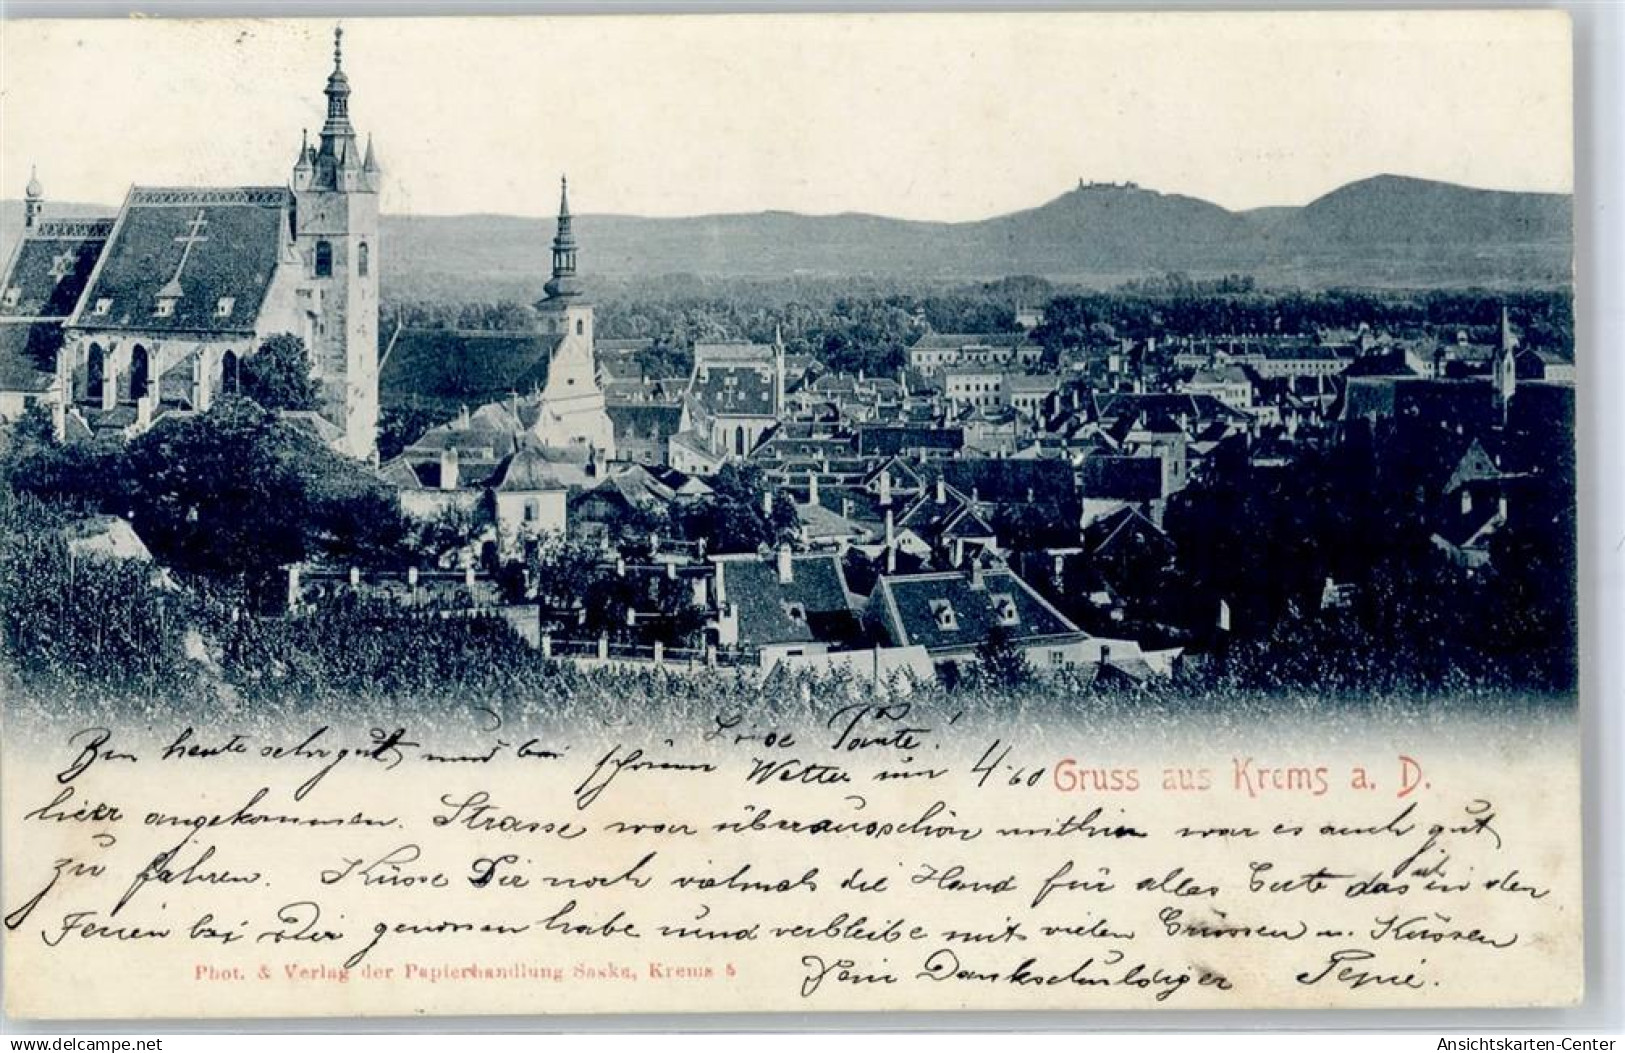 Liebe Tante!
Bin heute sehr gut und bei schönem Wetter um 4.60
Gruss aus Krems a. D.
hier angekommen. Strasse war überausschön mithin war es auch gut
zu fahren. Küsse Dir noch vielmals die Hand für alles Gute das ich in den
Ferien bei Dir genossen habe und verbleibe mit vielen Grüssen u. Küssen
Phot. & Verlag der Papierhandlung Saska, Krems 5
Dein Dankschuldiger Pepie.
delcampe.net
Ansichtskarten-Center